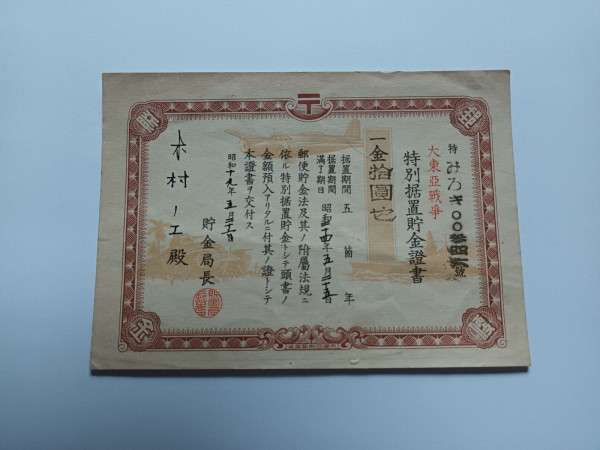 〒
特みろき〇〇参四弐號
大東亞戰爭
特別据置貯金證書
一金拾圓也
据置期間 五箇年
据置期間滿了期日 昭和二十四年五月三十五日
郵便貯金法及其ノ附屬法規ニ
依ル特別据置貯金トシテ頭書ノ
金額預入アリタルニ付其ノ證トシテ
本證書ヲ交付ス
昭和十九年五月三十一日
貯金局長
木村ノエ殿